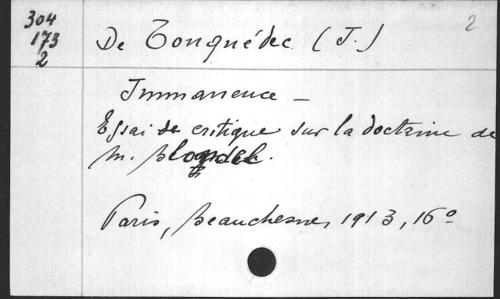 304
173
2
2
De Tonquédec (J.)
Immanence —
Essai de critique sur la doctrine de
M. Blondel.
Paris, Beauchesne, 1913, 16º